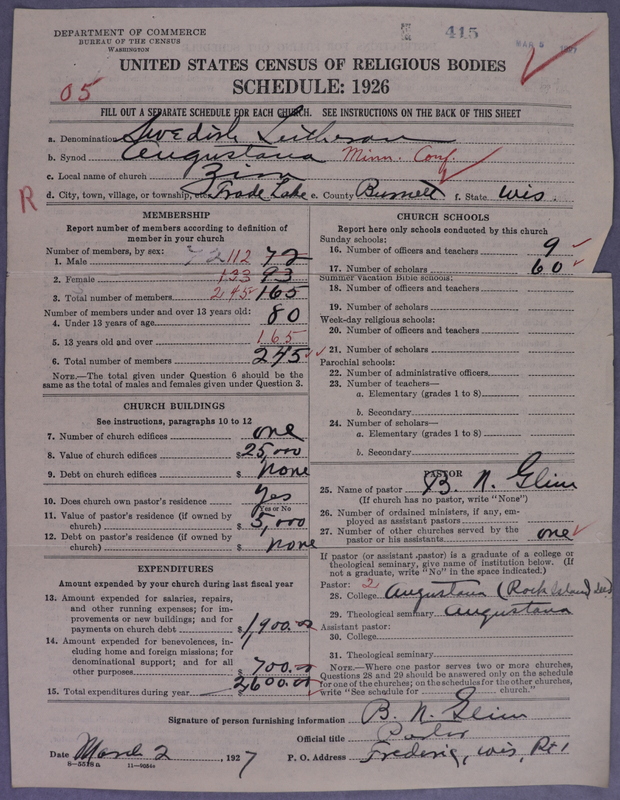 DEPARTMENT OF COMMERCE
BUREAU OF THE CENSUS
WASHINGTON
415
MAR 5 1927
UNITED STATES CENSUS OF RELIGIOUS BODIES
SCHEDULE: 1926
05
FILL OUT A SEPARATE SCHEDULE FOR EACH CHURCH. SEE INSTRUCTIONS ON THE BACK OF THIS SHEET
a. Denomination Swedish Lutheran
b. Synod Augustana Minn. Conf.
c. Local name of church Zion
R
d. City, town, village, or township, etc. Trade Lake e. County Burnett f. State Wis.
MEMBERSHIP
Report number of members according to definition of
member in your church
Number of members, by sex:
1. Male 72 112 72
2. Female 133 93
3. Total number of members 245 165
Number of members under and over 13 years old:
4. Under 13 years of age 80
5. 13 years old and over 165
6. Total number of members 245
NOTE.—The total given under Question 6 should be
same as the total of males and females given under Question 3.
CHURCH BUILDINGS
See instructions, paragraphs 10 to 12
7. Number of church edifices one
8. Value of church edifices $25,000
9. Debt on church edifices $ none
10. Does church own pastor's residence Yes
Yes or No
11. Value of pastor's residence (if owned by
church) $5,000
12. Debt on pastor's residence (if owned by
church) $ none
EXPENDITURES
Amount expended by your church during last fiscal year
13. Amount expended for salaries, repairs,
and other running expenses; for im-
provements or new buildings; and for
payments on church debt $1,900.00
14. Amount expended for benevolences, in-
cluding home and foreign missions; for
denominational support; and for all
other purposes 700.00
15. Total expenditures during year $2,600.00
CHURCH SCHOOLS
Report here only schools conducted by this church
Sunday schools:
16. Number of officers and teachers 9
17. Number of scholars 60
Summer Vacation Bible schools:
18. Number of officers and teachers
19. Number of scholars
Week-day religious schools:
20. Number of officers and teachers
21. Number of scholars
Parochial schools:
22. Number of administrative officers
23. Number of teachers—
a. Elementary (grades 1 to 8)
b. Secondary
24. Number of scholars—
a. Elementary (grades 1 to 8)
b. Secondary
PASTOR
25. Name of pastor B. N. Glim
(If church has no pastor, write "None")
26. Number of ordained ministers, if any, em-
ployed as assistant pastors
27. Number of other churches served by the
pastor or his assistants one
If pastor (or assistant pastor) is a graduate of a college or
theological seminary, give name of institution below. (If
not a graduate, write "No" in the space indicated.)
Pastor: 2
28. College Augustana (Rock Island
29. Theological seminary Augustana
Assistant pastor:
30. College
31. Theological seminary
NOTE.—Where one pastor serves two or more churches,
Questions 28 and 29 should be answered only on the schedule
for one of the churches; on the schedules for the other churches,
write "See schedule for church."
Signature of person furnishing information B. N. Glim
Official title Pastor
Date March 2, 1927 P. O. Address Frederic, Wis, Rt 1
8—5518a 11—9054